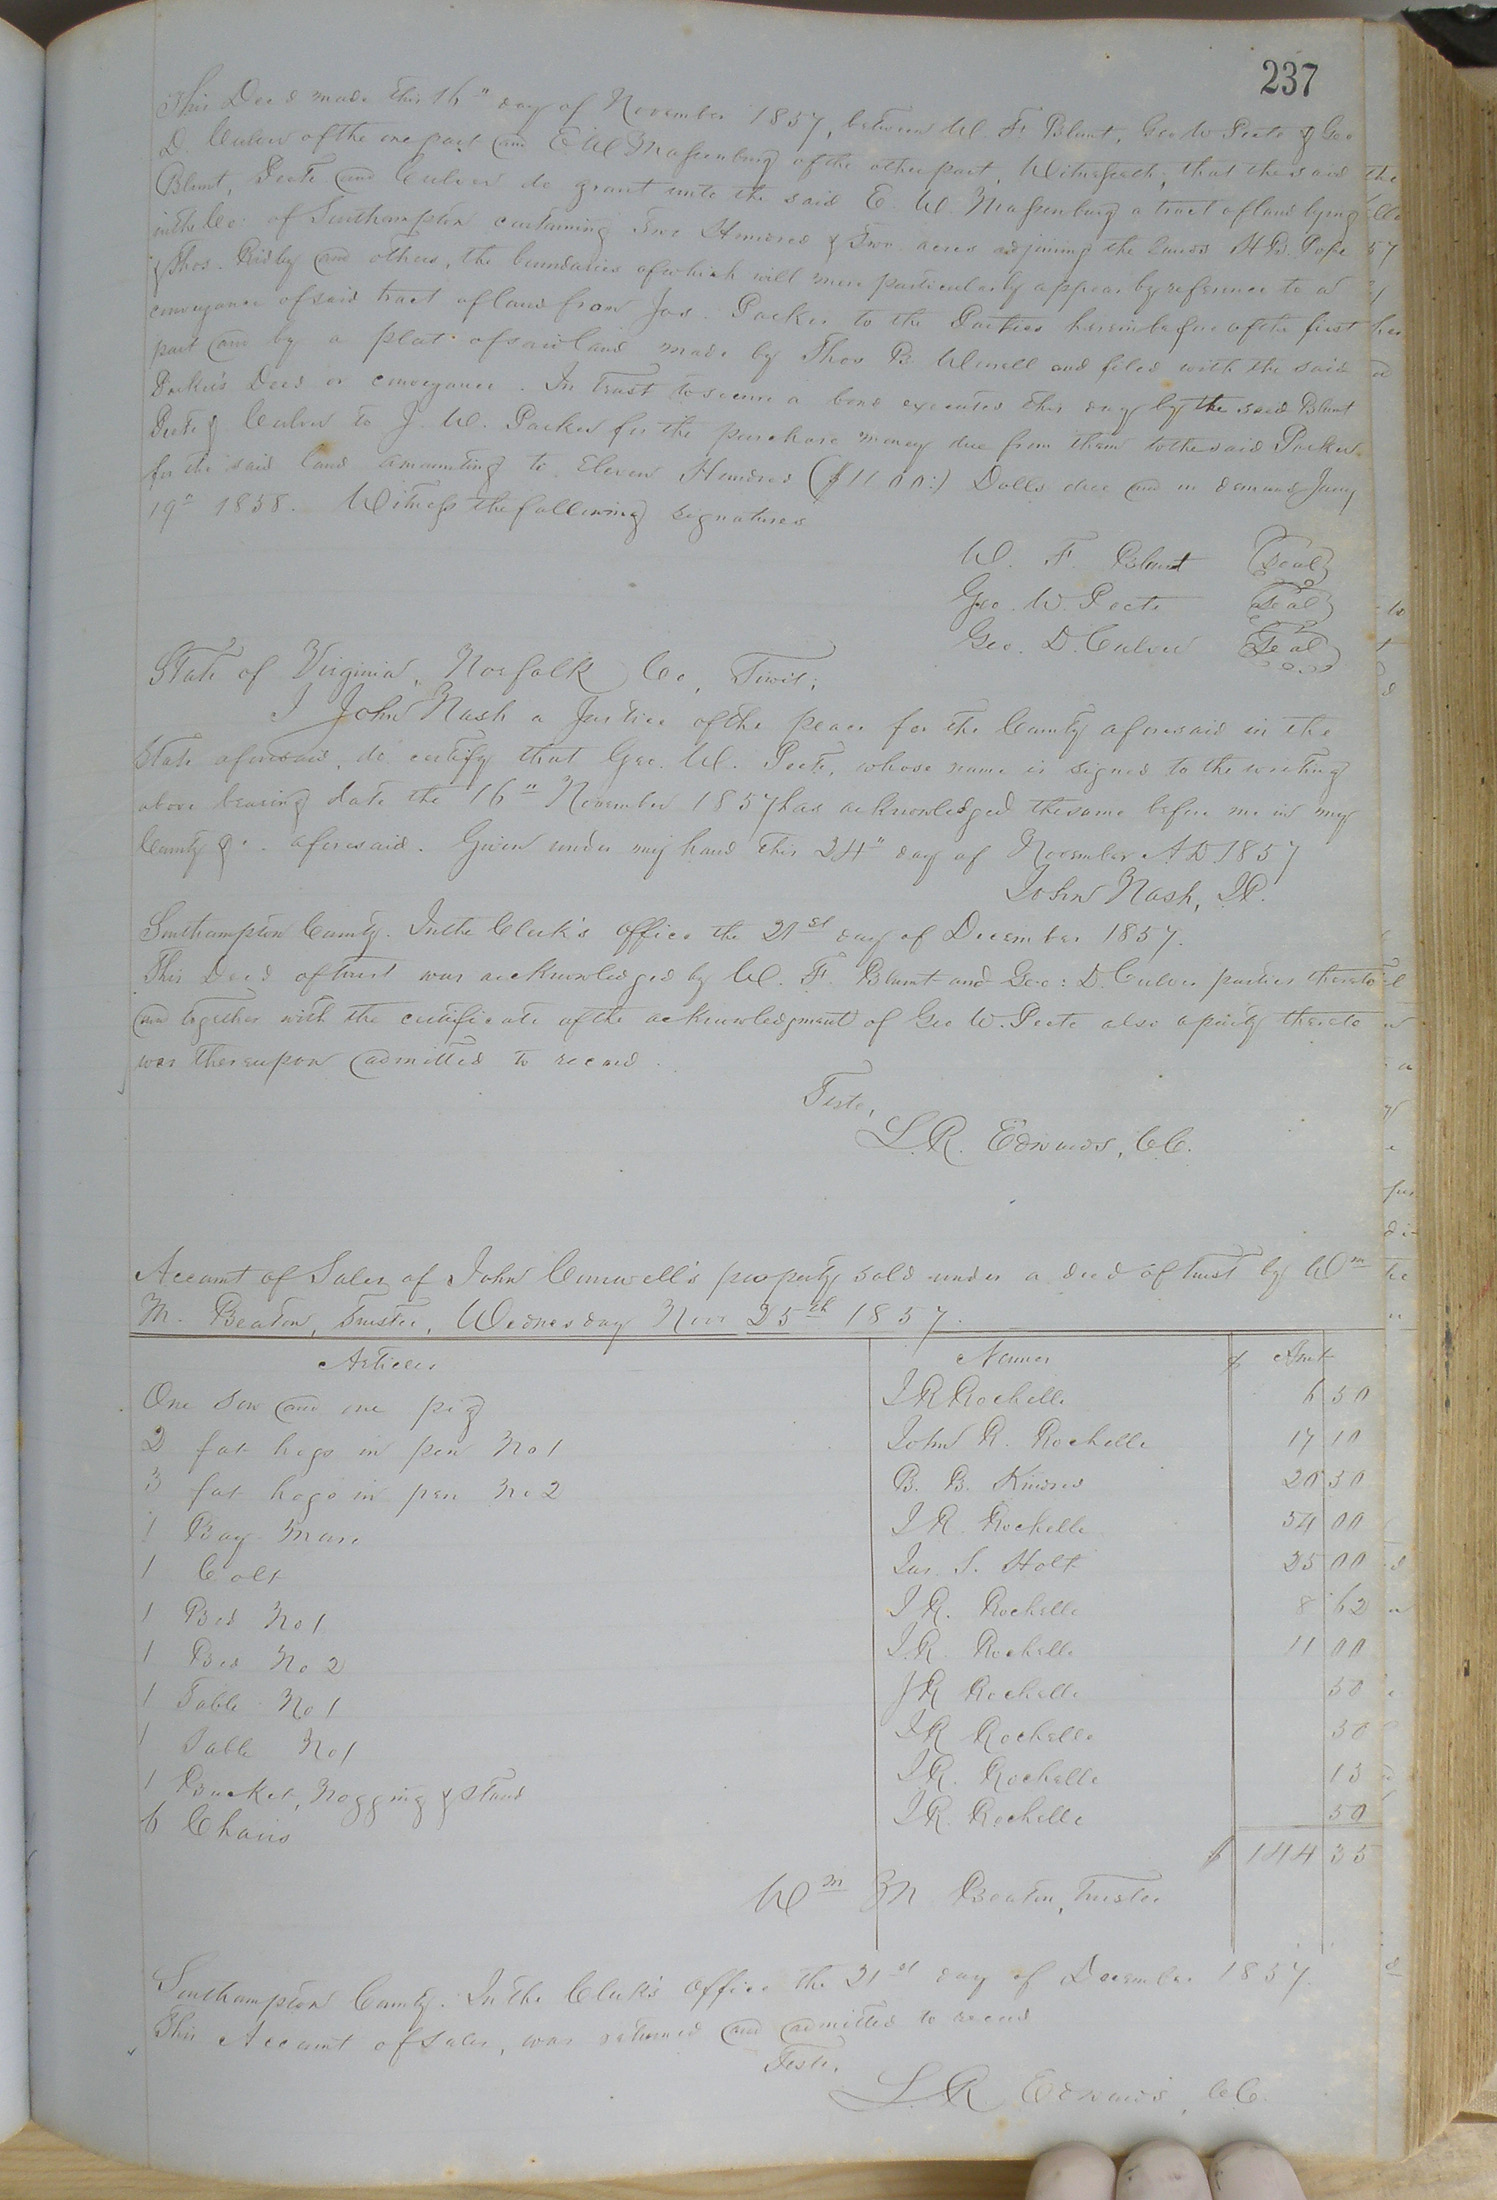 237
This Deed made this 16" day of November 1857, between W. F. Blunt, Geo W Peete & Geo
D. Culver of the one part and E. W Massenburg of the other part, Witnesseth, that the said
Blunt, Peete and Culver do grant unto the said E. W. Massenburg a tract of land lying
in the Co. of Southampton containing Two Hundred & Two acres adjoining the lands H B. Pope
& Thos. Ridley and others, the boundaries of which will more particularly appear by reference to a
conveyance of said tract of land from Jas. Parker to the Parties hereinbefore of the first
part and by a plat of said land made by Thos B. and filed with the said
Parker's Deed or conveyance. In trust to secure a bond executed this day by the said Blunt
Peete & Culver to J. W. Parker for the purchase money due from them to the said Parker
for the said land amounting to Eleven Hundred ($1100:) Dolls due and on demand Jany
19th 1858. Witness the following signatures
W. F. Blunt (Seal)
Geo. W. Peete (Seal)
Geo. D. Culver (Seal)
State of Virginia, Norfolk Co, Towit;
I John Nash a Justice of the peace for the County aforesaid in the
State aforesaid, do certify that Geo. W. Peete, whose name is signed to the writing
above bearing date the 16" November 1857 has acknowledged the same before me in my
County &c. aforesaid. Given under my hand this 24" day of November A.D. 1857
John Nash, J.P.
Southampton County. In the Clerk's office the 21st day of December 1857.
This Deed of trust was acknowledged by W. F. Blunt and Geo: D. Culver parties thereto
and together with the certificate of the acknowledgment of Geo W. Peete also a party thereto
was thereupon admitted to record.
Teste,
L. R. Edwards, C.C.
Account of Sales of John Cunwell's property sold under a deed of trust by Wm
M. Beaton, Trustee, Wednesday Nov 25th 1857.
Articles Names $ Amt
One Sow and one pig J R Rochelle 6 50
2 fat hogs in pen No 1 John R. Rochelle 17 10
3 fat hogs in pen No 2 B. B. Kindred 20 50
1 Bay Mare J R. Rochelle 54 00
1 Colt Jas. S. Holt 25 00
1 Bed No 1 J R. Rochelle 8 62
1 Bed No 2 J. R. Rochelle 11 00
1 Table No 1 J R Rochelle 50
1 Table No 1 J R Rochelle 50
1 Bucket, Noggin & Stand J R. Rochelle 13
6 Chairs J R. Rochelle 50
$ 144 35
Wm M Beaton, Trustee
Southampton County. In the Clerk's Office the 21st day of December 1857.
This Account of Sales, was returned and admitted to record
Teste,
L. R. Edwards, C.C.